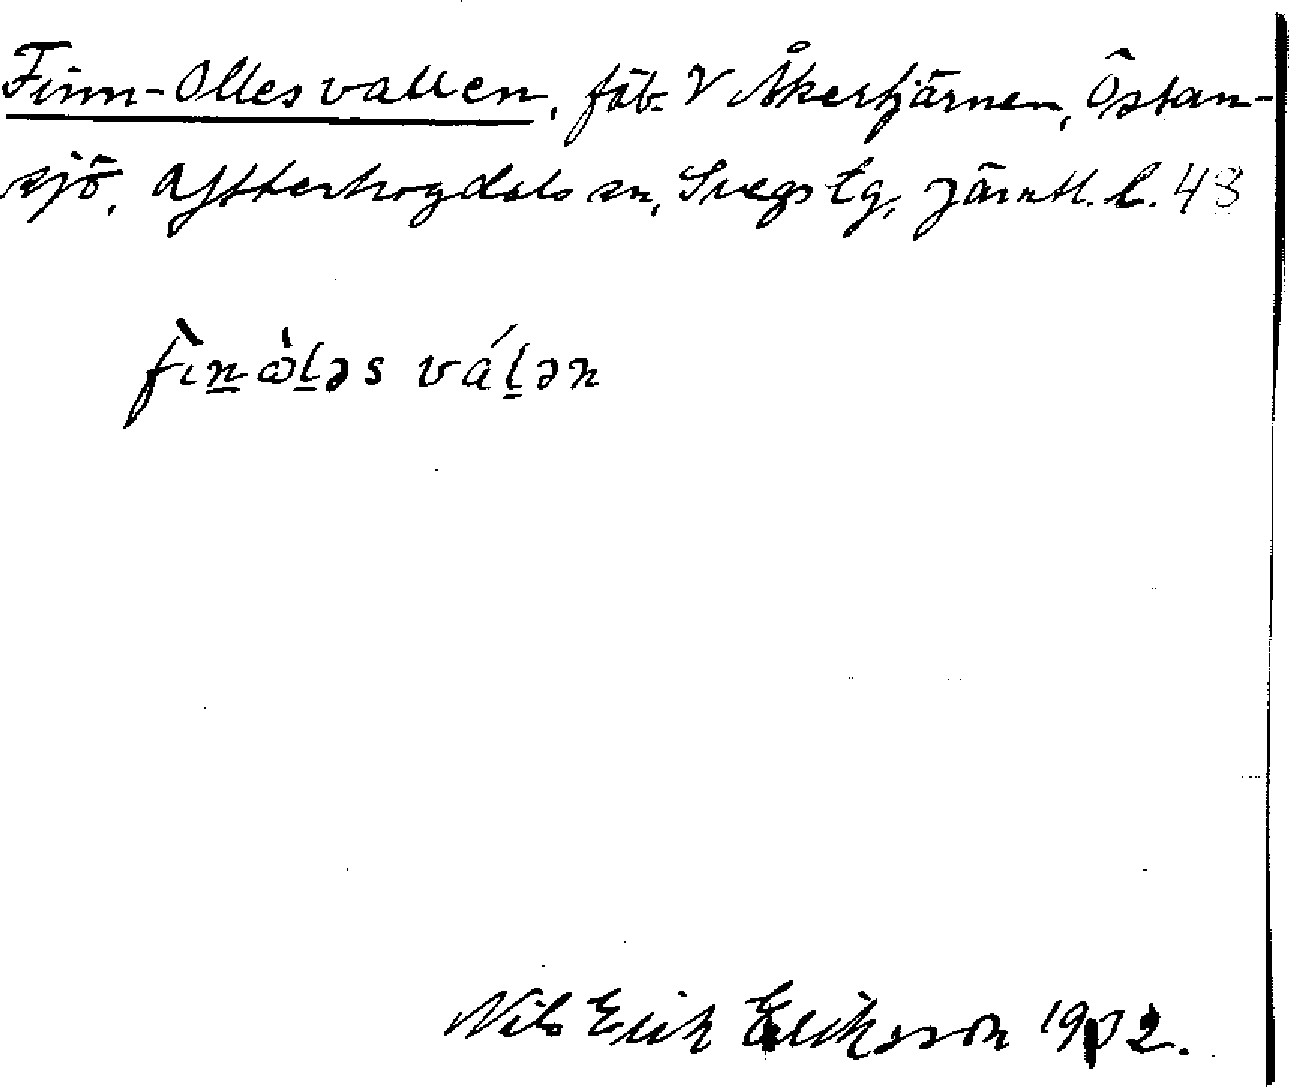 Finn-Ollesvallen, fäb. V Åkertjärnen, Östan-
sjö, Ytterhogdals sn, Svegs tg, Jämtl. l. 48
fìn̲ὼl̲əs vál̲ən
Nils Erik Eriksson